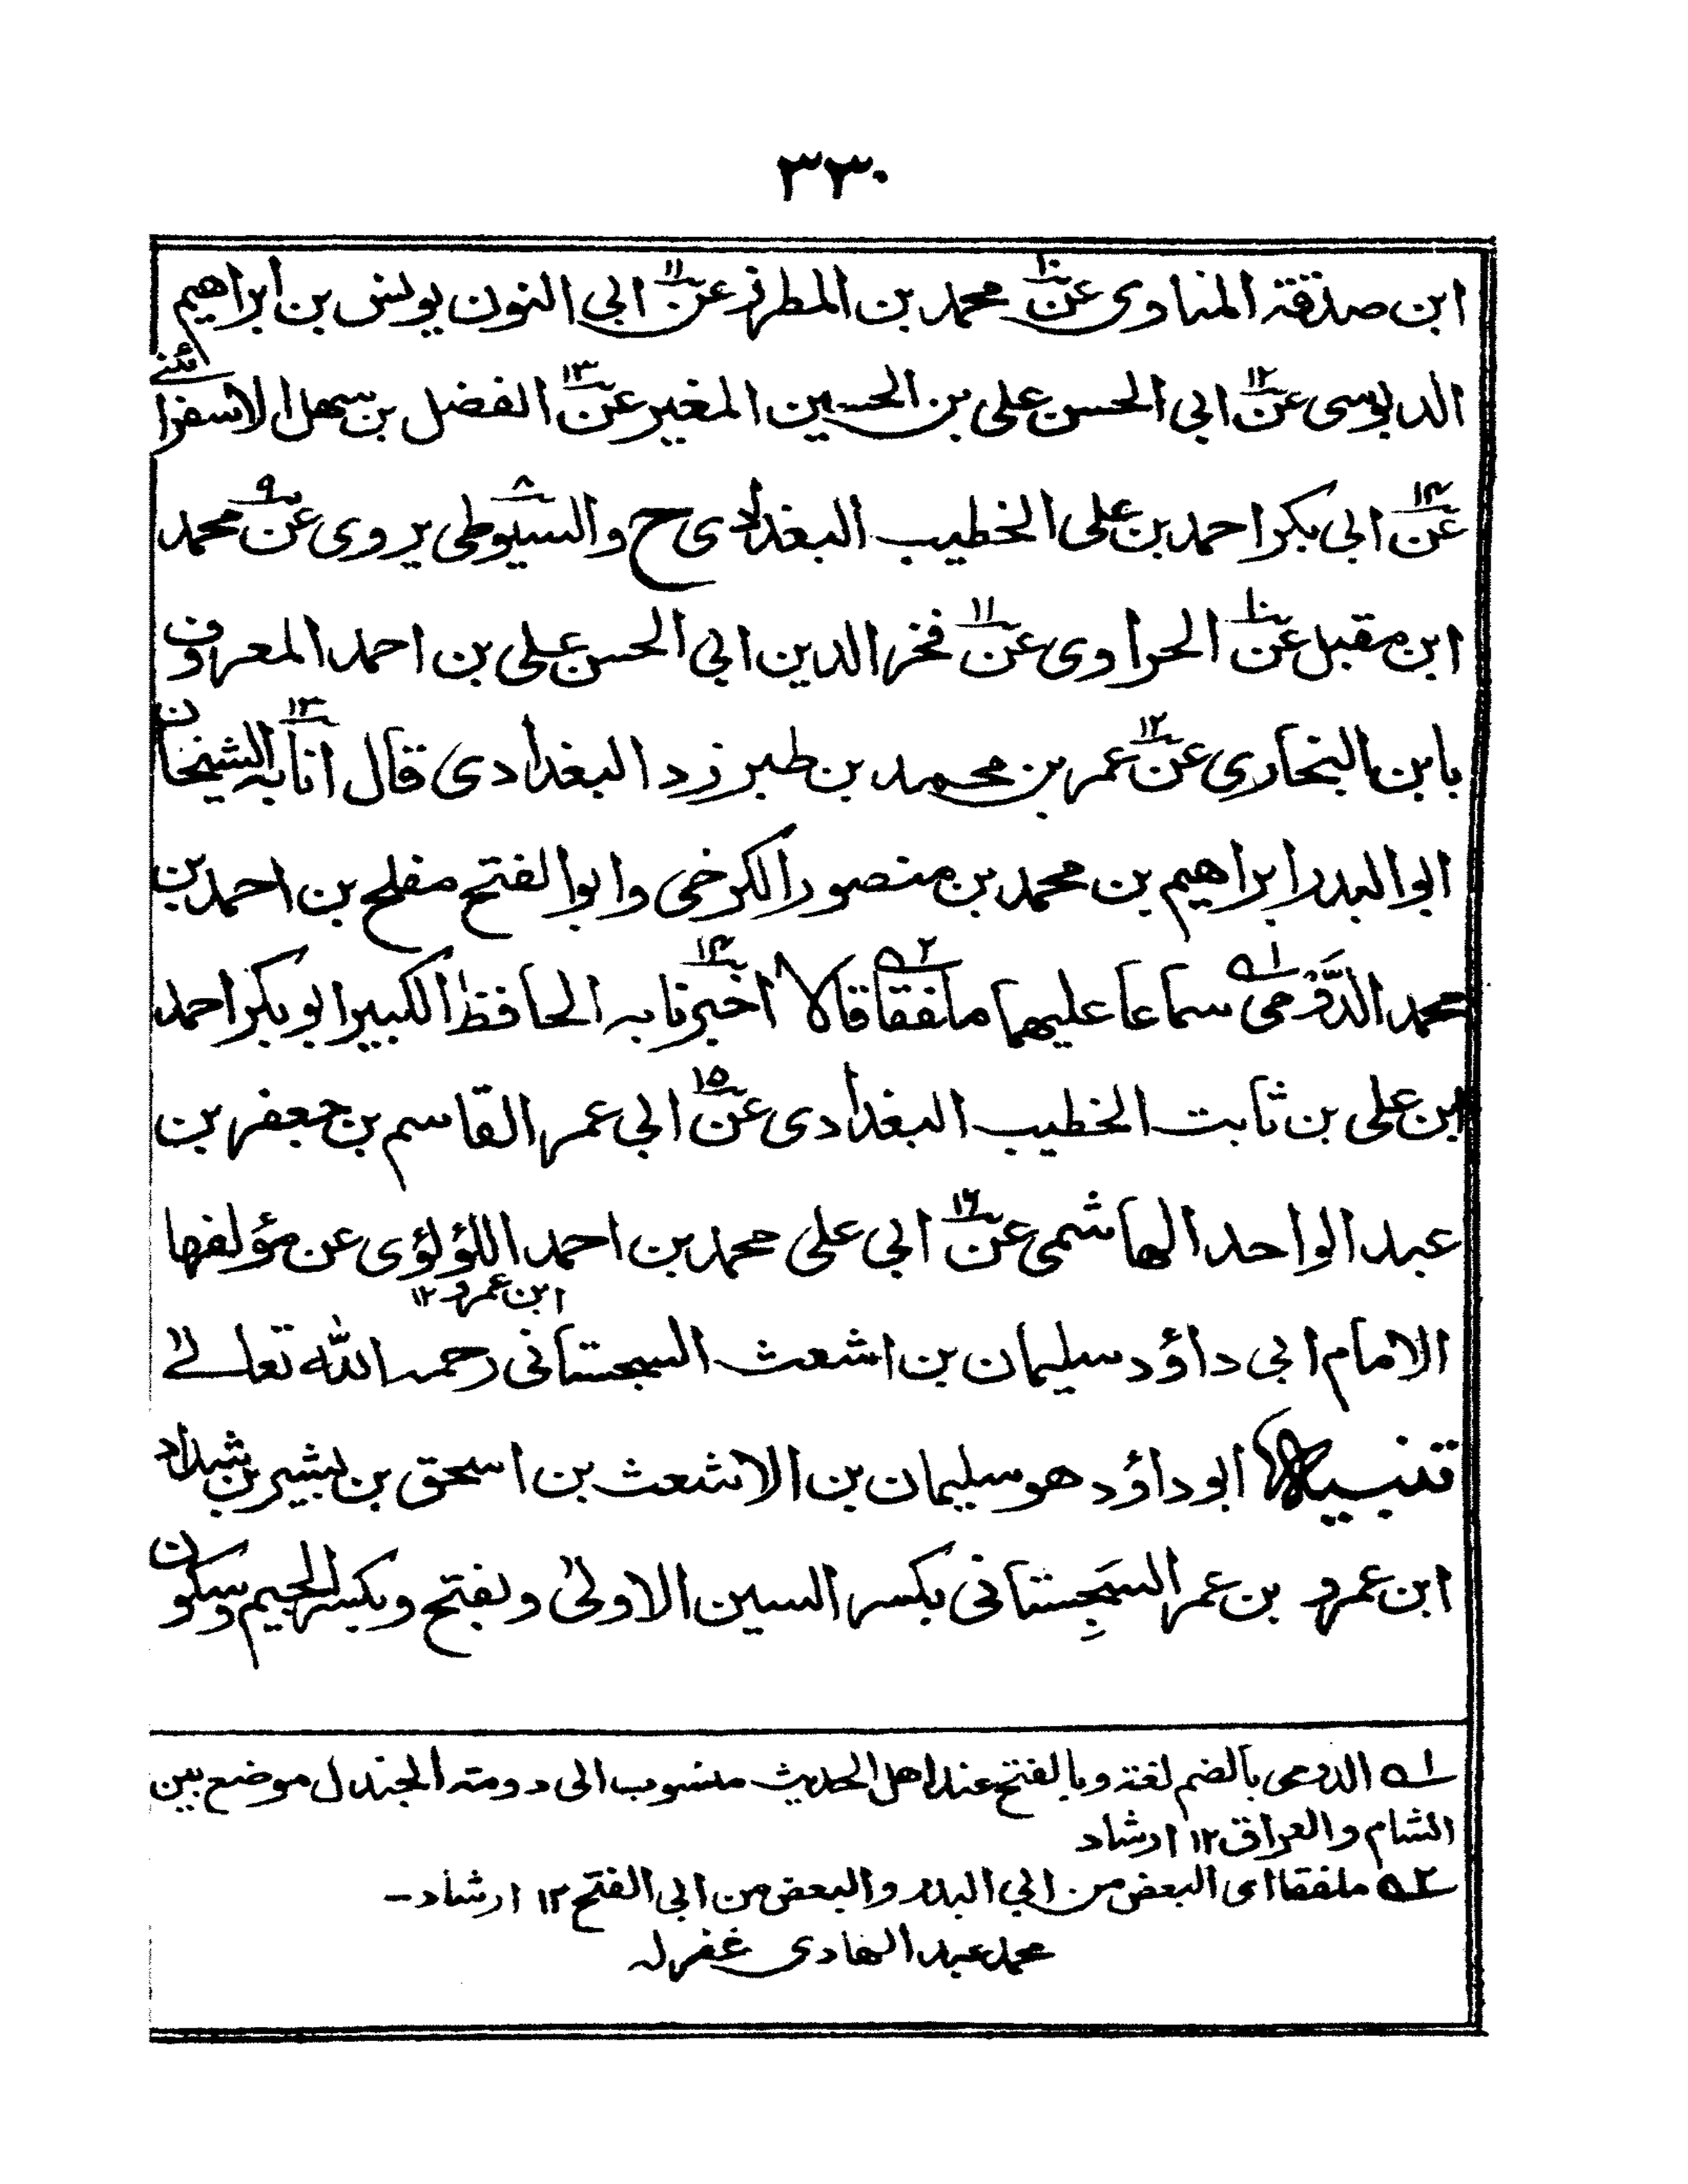 ٣٣٠
ابن صدقة المناوى عن١٠ محمد بن المطرز عن١١ ابي النون يونس بن ابراهيم
الدبوسى عن١٢ ابي الحسن على بن الحسين المغير عن١٣ الفضل بن سهل الاسفرائنے
عن١٤ ابي بكر احمد بن على الخطيب البغدادى ح والسيوطى٨ يروى عن٩ محمد
ابن مقبل عن١٠ الحراوى عن١١ فخر الدين ابي الحسن على بن احمد المعروف
بابن البخارى عن١٢ عمر بن محمد بن طبرزد البغدادى قال انا١٣ به الشيخان
ابو البدر ابراهيم بن محمد بن منصور الكرخى وابو الفتح مفلح بن احمد بن
محمد الدَّوْمى١ه سماعا عليهما ملفقا٢ه قالا اخبرنا١٤ به الحافظ الكبير ابو بكر احمد
ابن على بن ثابت الخطيب البغدادى عن١٥ ابي عمر القاسم بن جعفر بن
عبد الواحد الهاشمى عن١٦ ابي على محمد بن احمد اللؤلؤى عن مؤلفها
ابن عمرو ١٢
الامام ابى داؤد سليمان بن اشعث السجستانى رحمه الله تعالىٰ
تنبيه ابو داؤد هو سليمان بن الاشعث بن اسحق بن بشير بن شداد
ابن عمرو بن عمر السَجِستانى بكسر السين الاولىٰ وبفتح وبكسر الجيم وسكون
١ه الدومى بالضم لغة وبالفتح عند اهل الحديث منسوب الى دومة الجندل موضع بين
الشام والعراق ١٢ ارشاد
٢ه ملفقا اى البعض من ابي البدر والبعض من ابي الفتح ١٢ ارشاد -
محمد عبد الهادى غفر له